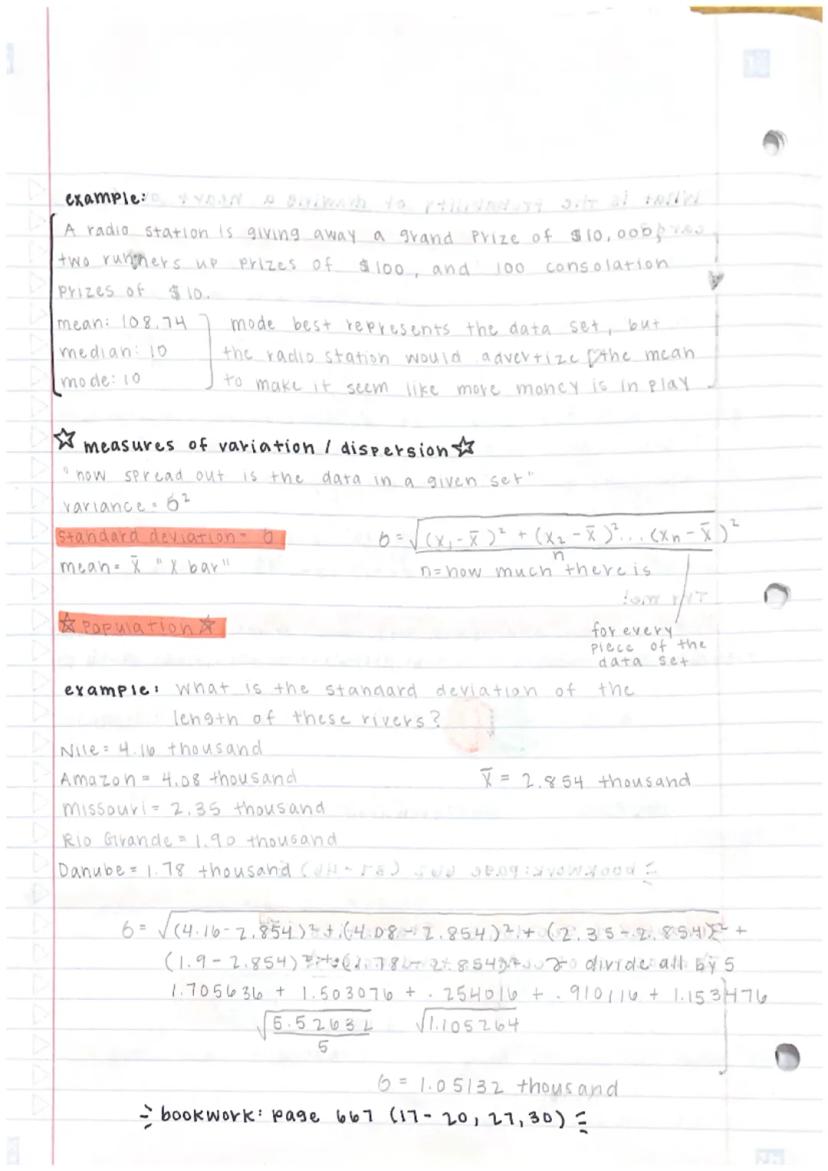 example:
A radio station is giving away a grand prize of $10,000,
two runners up prizes of $100, and 100 consolation
prizes of $10.
mean: 108.74
median: 10
mode: 10
mode best represents the data set, but
the radio station would advertize the mean
to make it seem like more money is in play
☆ measures of variation / dispersion ☆
"how spread out is the data in a given set"
variance = б²
standard deviation = б
mean = x̄ "x bar"
б = √(x₁ - x̄)² + (x₂ - x̄)² ... (xn - x̄)²
n
n = how much there is
for every
piece of the
data set
☆ population ☆
example: what is the standard deviation of the
length of these rivers?
Nile = 4.16 thousand
Amazon = 4.08 thousand
Missouri = 2.35 thousand
Rio Grande = 1.90 thousand
Danube = 1.78 thousand
x̄ = 2.854 thousand
б = √(4.16 - 2.854)² + (4.08 - 2.854)² + (2.35 - 2.854)² +
(1.9 - 2.854)² + (1.78 - 2.854)² divide all by 5
1.705636 + 1.503076 + .254016 + .910116 + 1.153476
√5.52632 √1.105264
5
б = 1.05132 thousand
bookwork: page 667 (17 - 20, 27, 30)